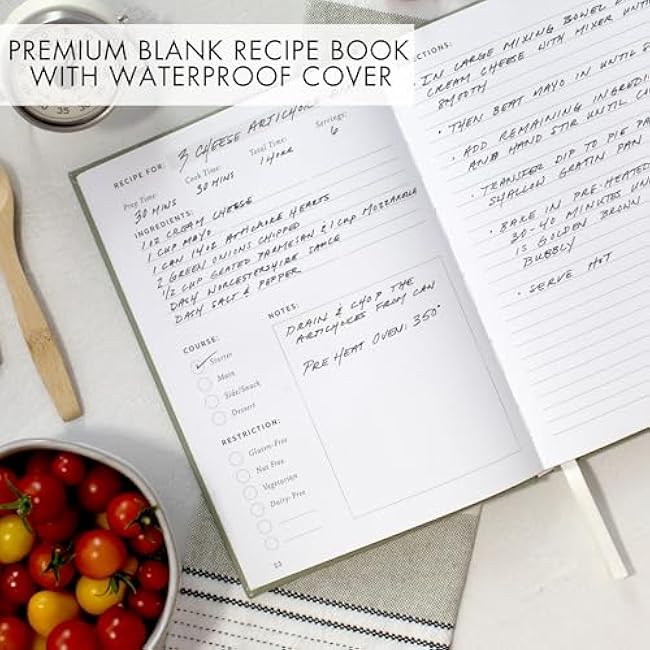 PREMIUM BLANK RECIPE BOOK
WITH WATERPROOF COVER
RECIPE FOR: 3 CHEESE ARTICHOKE
Prep Time: Cook Time: Total Time: Servings:
30 MINS 30 MINS 1 HOUR 6
INGREDIENTS:
CREAM CHEESE
1 CUP MAYO
1 CAN 14OZ ARTICHOKE HEARTS
2 GREEN ONIONS CHIPPED
1/2 CUP GRATED PARMESAN & 1 CUP MOZZARELLA
DASH WORCESTERSHIRE SAUCE
DASH SALT & PEPPER
COURSE:
Starter
Main
Side/Snack
Dessert
RESTRICTION:
Gluten-Free
Nut Free
Vegetarian
Dairy-Free
NOTES:
DRAIN & CHOP THE
ARTICHOKES FROM CAN
PRE HEAT OVEN: 350°
CTIONS:
• IN LARGE MIXING BOWEL
CREAM CHEESE WITH MIXER UNTI
SMOOTH
• THEN BEAT MAYO IN UNTIL
• ADD REMAINING INGREDI
AND HAND STIR UNTIL CO
• TRANSFER DIP TO PIE PA
SHALLOW GRATIN PAN
• BAKE IN PRE-HEATED
30-40 MINUTES UN
IS GOLDEN BROWN
BUBBLY
• SERVE HOT